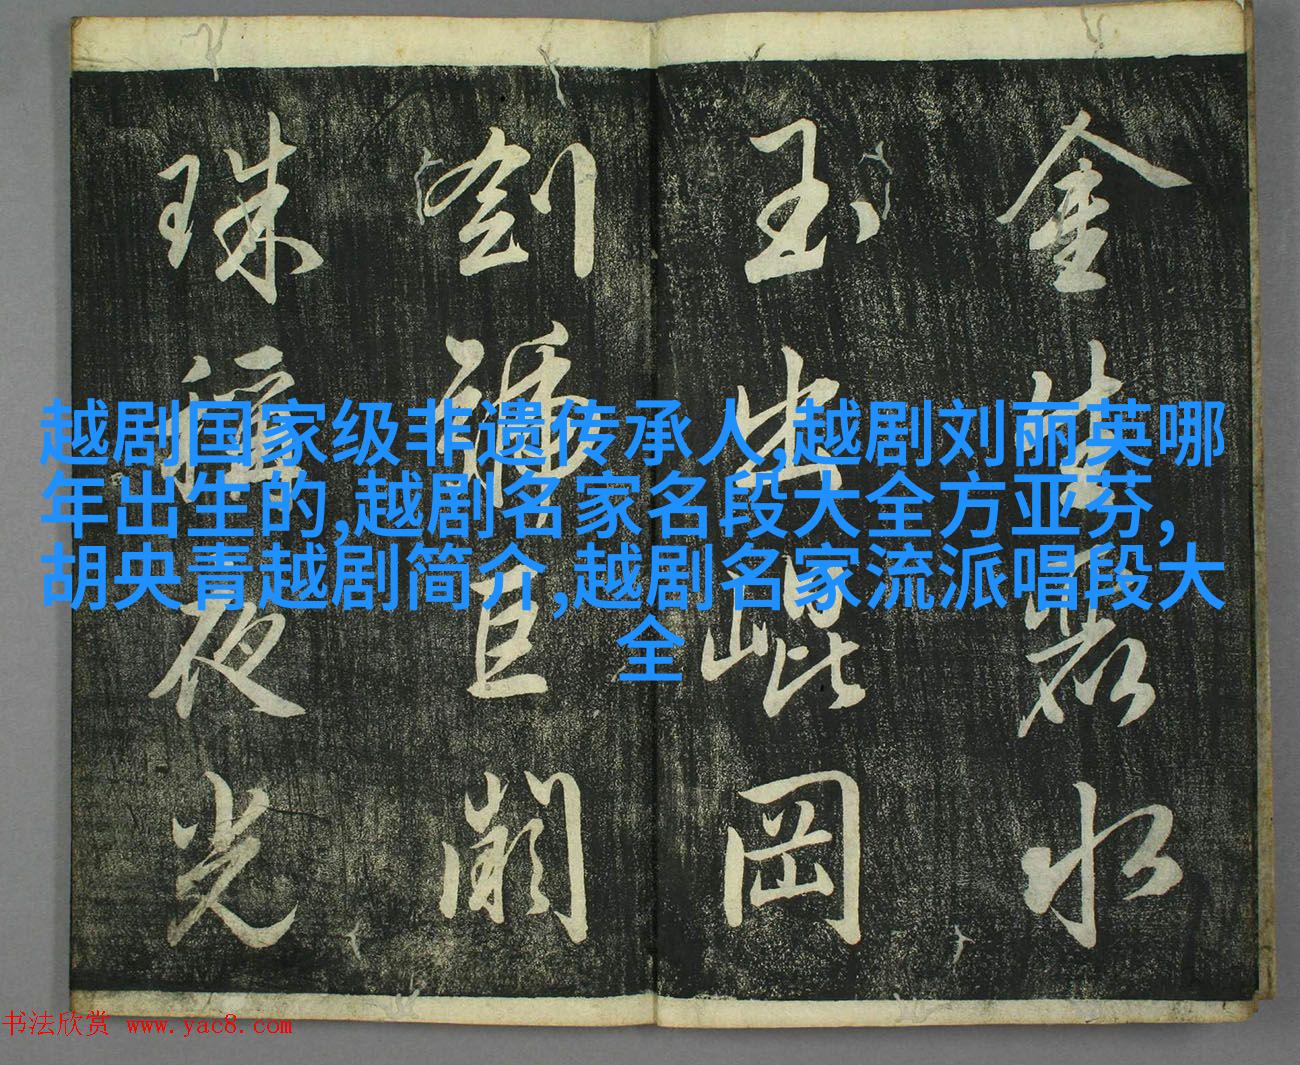 金生麗水
玉出崐岡
劍號巨闕
珠稱夜光
越剧国家级非遗传承人,越剧刘丽英哪
年出生的,越剧名家名段大全方亚芬,
胡央青越剧简介,越剧名家流派唱段大
全
书法欣赏 www.yac8.com